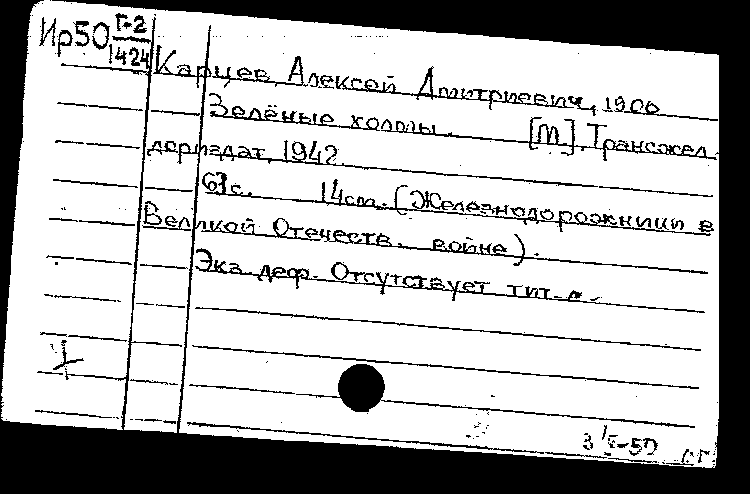 Ир50 Г-2
1424
Карцев, Алексей Дмитриевич, 1900
Зелёные холмы. [М], Трансжел-
дориздат, 1942.
63с. 14см. (Железнодорожники в
Великой Отечеств. войне).
Экз. деф. Отсутствует тит. л.
3/X-50